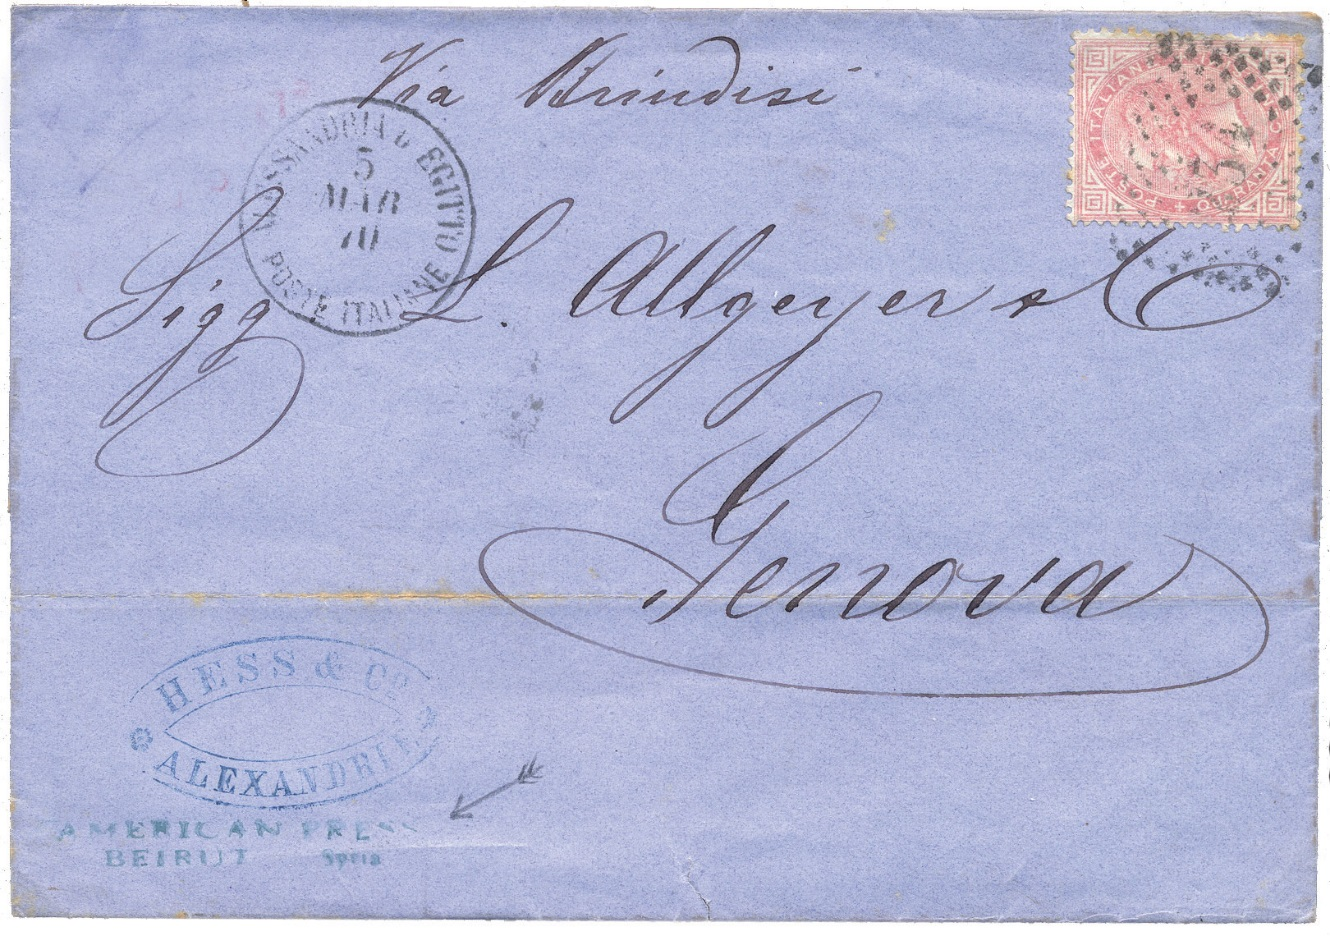 Via Brindisi
ALESSANDRIA D'EGITTO
5
MAR
70
POSTE ITALIANE
POSTE ITALIANE
QUARANTA C
234
Sigg L. Allgeyer & C
Genova
HESS & Co
ALEXANDRIE
AMERICAN PRESS
BEIRUT Syria